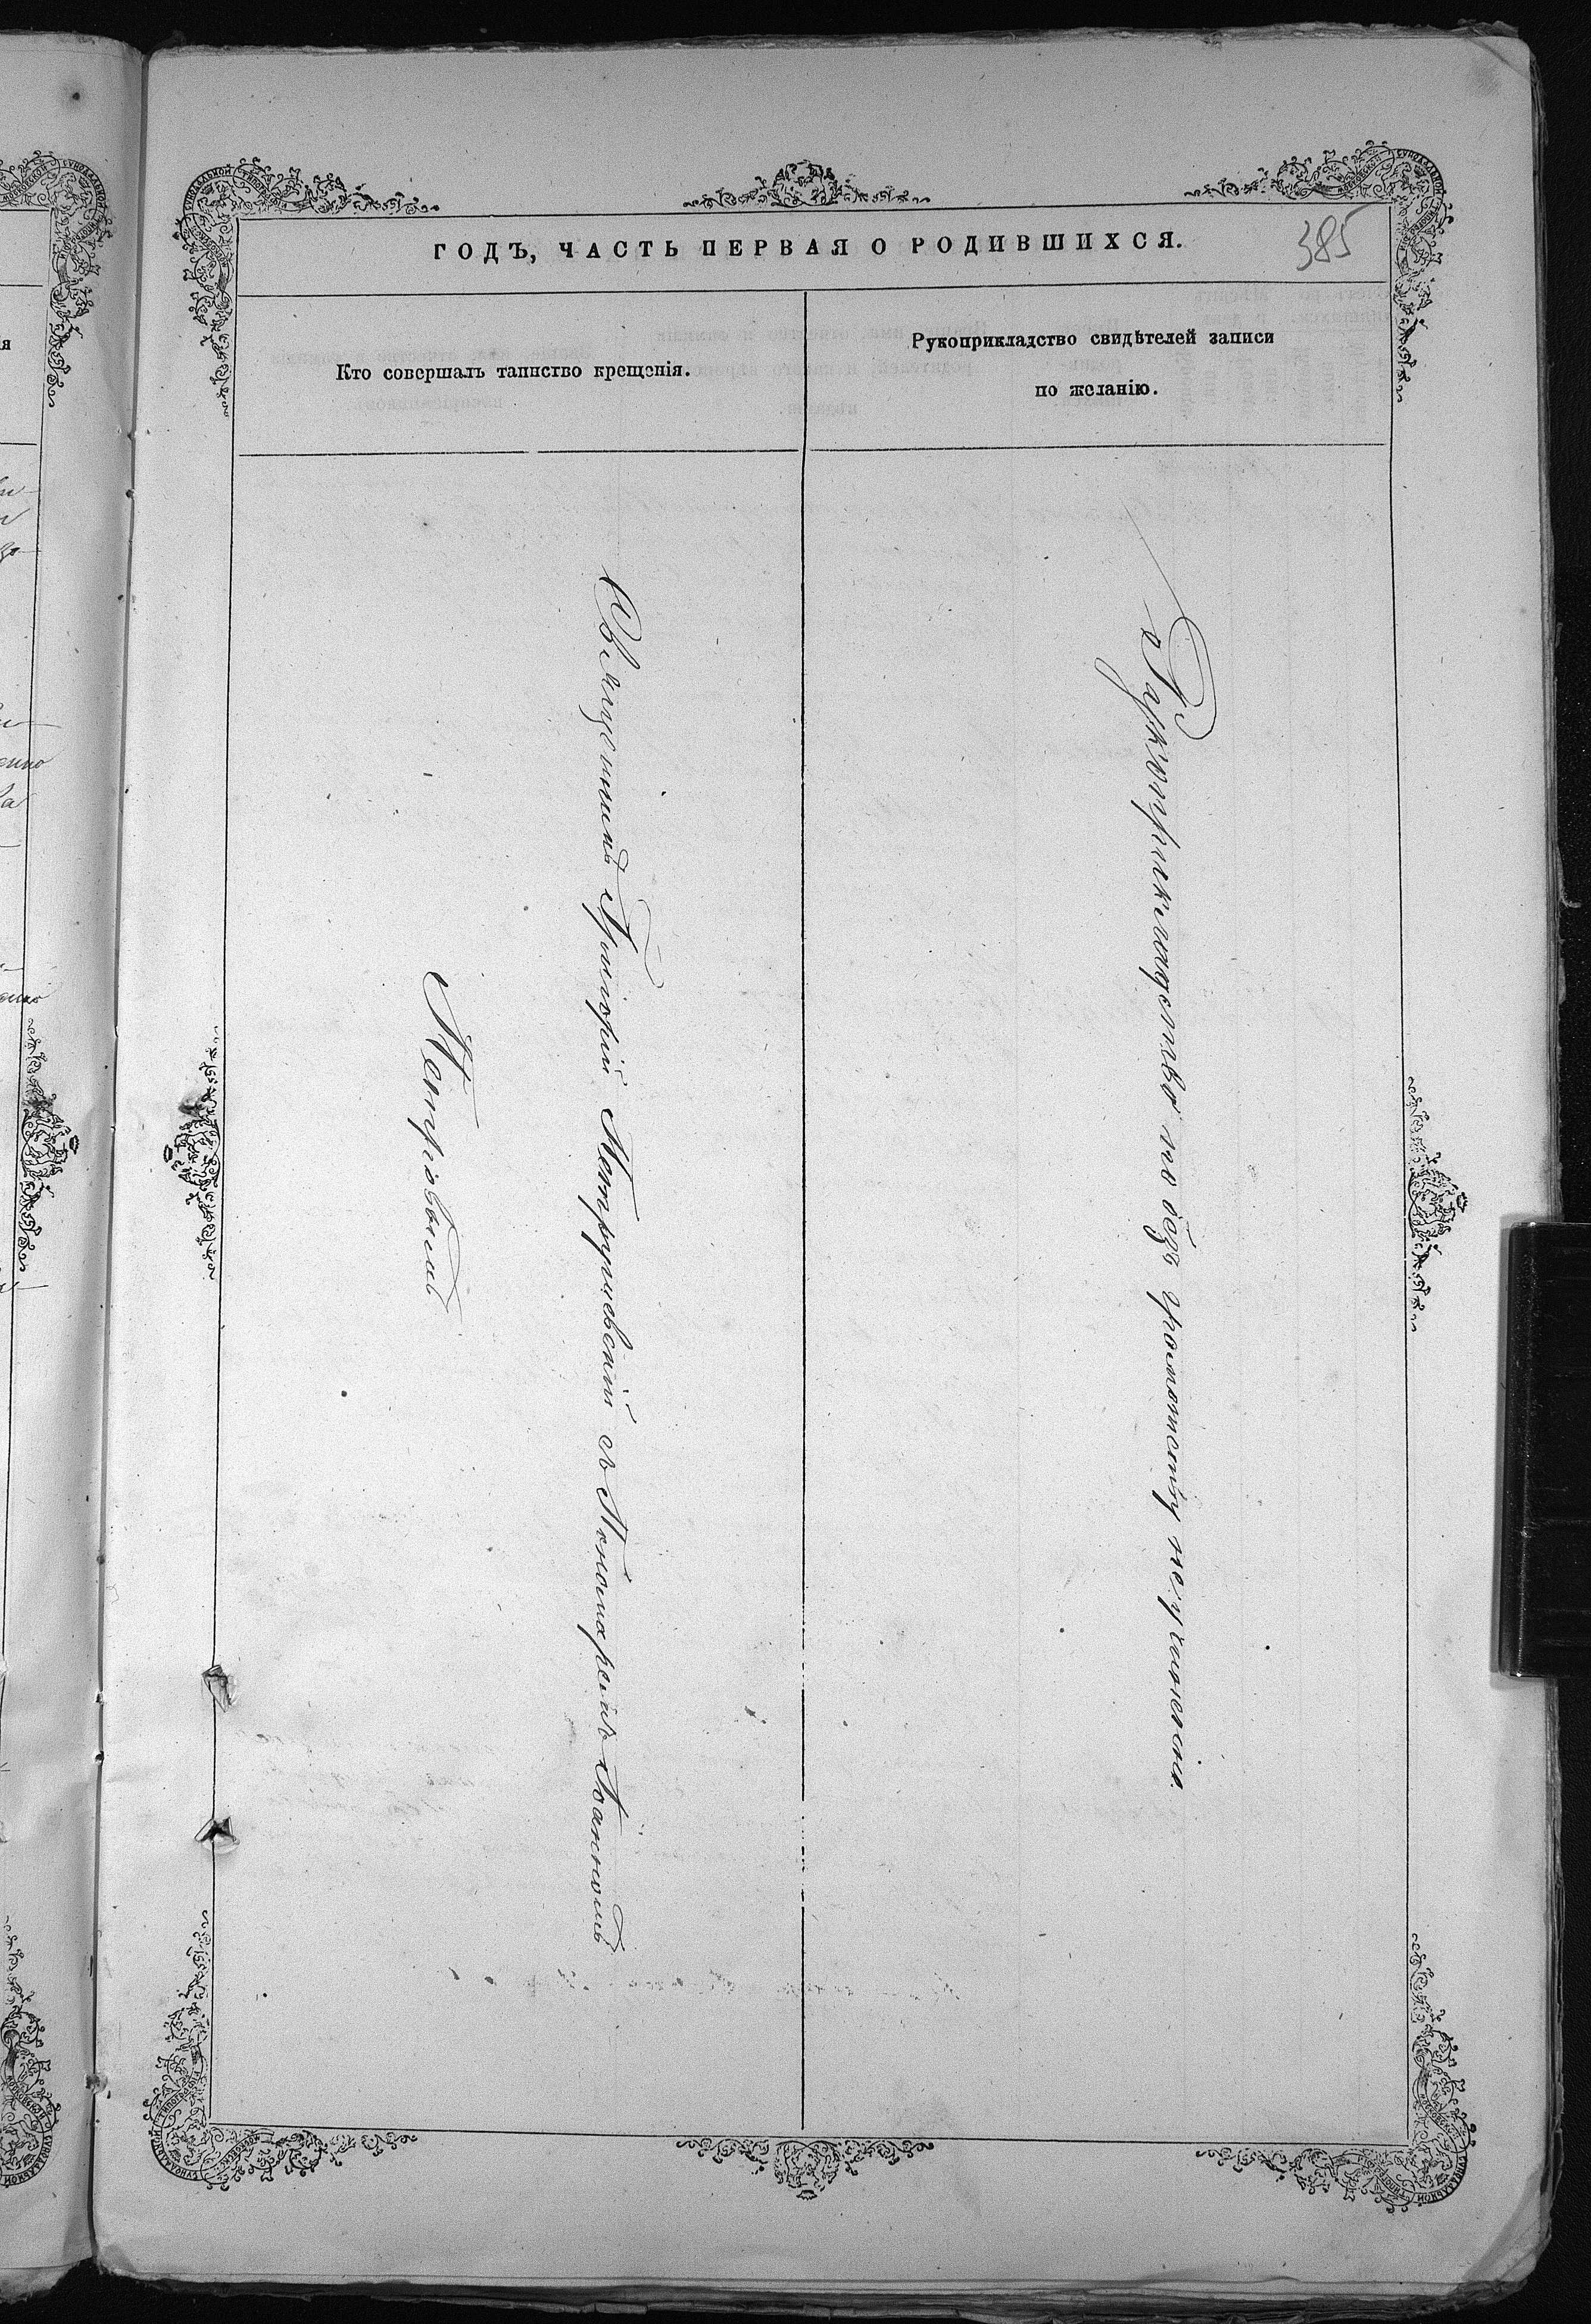 ГОДЪ, ЧАСТЬ ПЕРВАЯ О РОДИВШИХСЯ.
385
Кто совершалъ таинство крещенія.
Рукоприкладство свидѣтелей записи
по желанію.
Священникъ Григорій Петрушевскій съ Пономаремъ Іоанномъ
Петровымъ
Рукоприкладство по безграмотству неучинено.